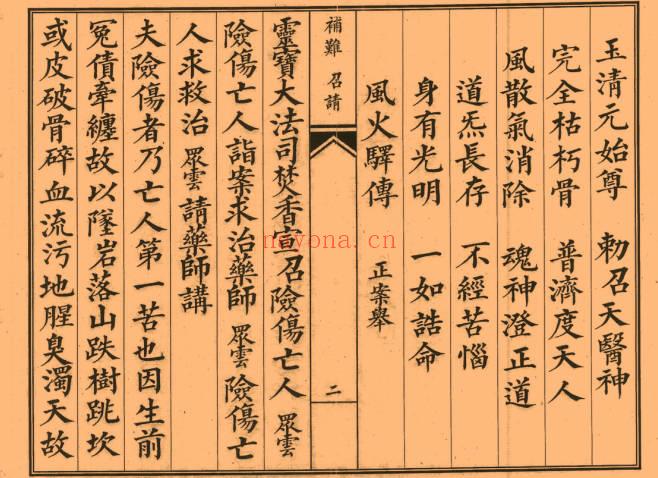 玉清元始尊　勅召天醫神
完全枯朽骨　普濟度天人
風散氣消除　魂神澄正道
道炁長存　不經苦惱
身有光明　一如誥命
風火驛傳　正案舉
補難　召請
二
靈寶大法司焚香宣召險傷亡人眾雲
險傷亡人詣案求治藥師眾雲險傷亡
人求救治眾雲請藥師講
夫險傷者乃亡人第一苦也因生前
冤債牽纏故以墜岩落山跌樹跳坎
或皮破骨碎血流污地腥臭濁天故
nayona.cn